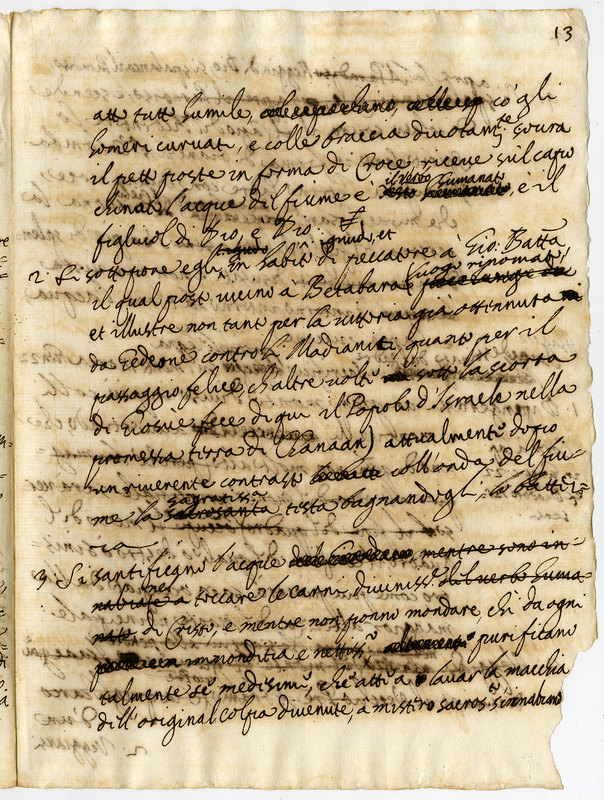 13
atto tutto humile, co gli
homeri curvati, e colle braccia divotamte sovra
il petto poste in forma di Croce, riceve sul capo
chinato l'acque del fiume è il verbo humanato, e il
figliuol di Dio, e Dio.
2 Si sottopone egli ignudo, et in habito di peccatore à Gio: Batta,
il qual posto vicino à Betabara luogo rinomato,
et illustre non tanto per la vittoria già ottenuta
da Gedeone contro li Madianiti, quanto per il
passaggio felice ch'altre volte sotto la scorta
di Giosue fece di qui il Popolo d'Israele nella
promessa terra di Chanaan) attualmente dopo
un riverente contrasto coll'onda del fiu-
me la sagratissa testa bagnandogli, lo battez-
za
3 Si santificano l'acque mentre sono in-
nalzate a toccare le carni diviniss.e del verbo huma-
nato di Cristo, e mentre non ponno mondare, chi da ogni
immonditia è nettiss.o purificano
talmente se medesime, che atte a lavar la macchia
dell'original colpa divenute, a mistero sacros.o s'innalzano